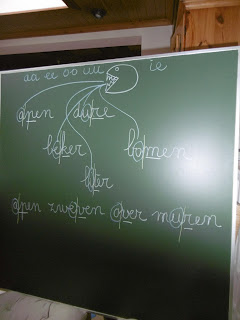 aa ee oo uu ie
apen dure
beker bomen
liter
apen zweven over muren